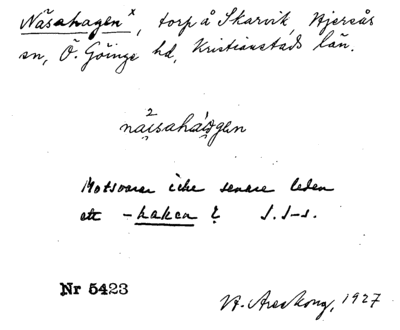 Näsahagen x, torp å Skarvik, Hjersås
sn, Ö. Göinge hd, Kristianstads län.
2
näisahágen
Motsvarar icke senare leden
ett -haken? J. S-s.
Nr 5423
W. Areskog, 1927